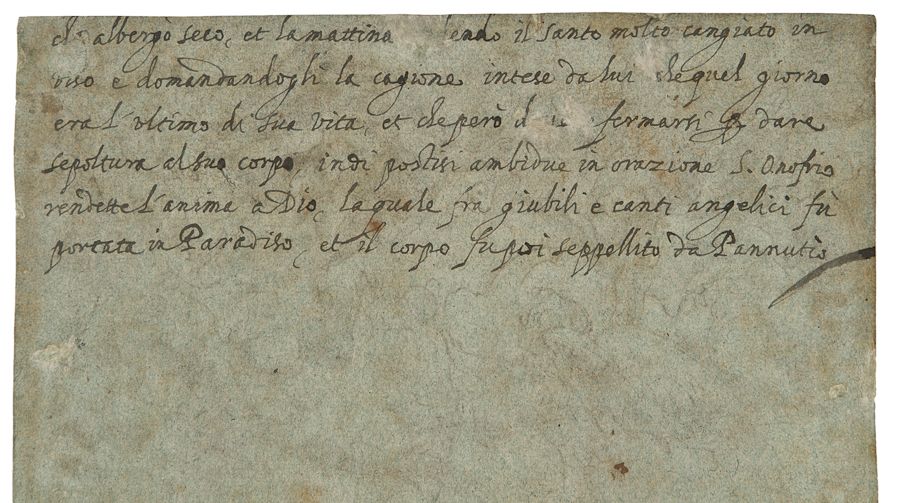 albergò seco, et la mattina endo il santo molto cangiato in
viso e domandandogli la cagione intese da lui che quel giorno
era l'ultimo di sua vita, et che però fermarsi dare
sepoltura al suo corpo, indi postisi ambidue in orazione S. Onofrio
rendette l'anima a Dio, la quale frà giubili e canti angelici fù
portata in Paradiso, et il corpo fu poi seppellito da Pannutio